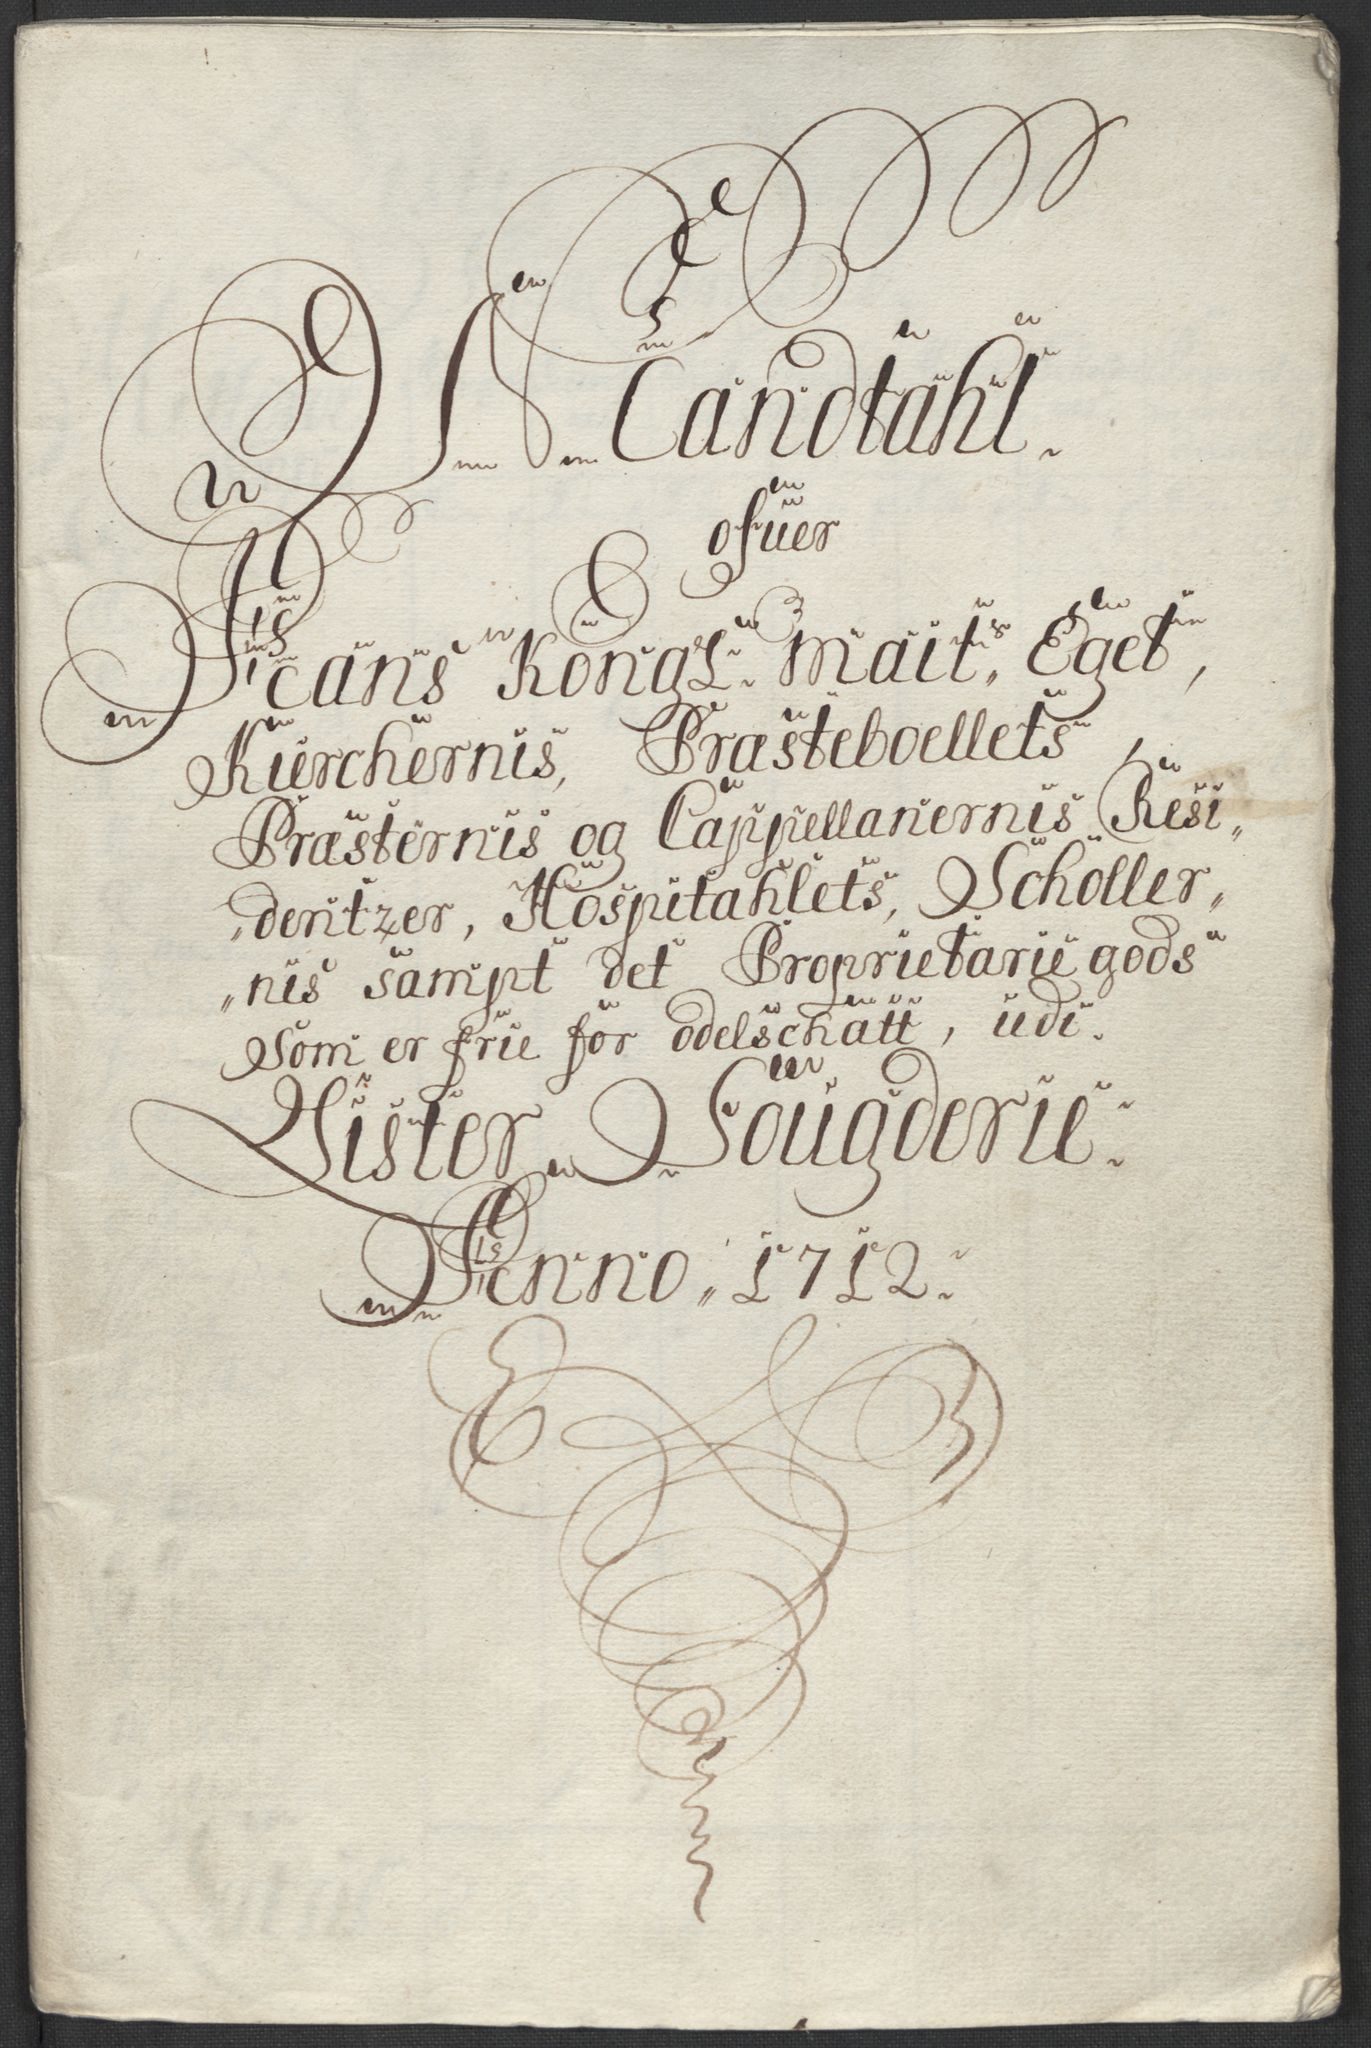 Mandtahl.
ofuer
Hans Kongl: Maits. Eget,
KircHernis, Præsteboellets,
Præsternis og Cappellanernis Resi„
„dentzer, Hospitahlets, Scholler„
„nis sampt det Proprietarie gods
Som er frie for odelschatt, udi.
Lister Fougderie.
Anno. 1712.